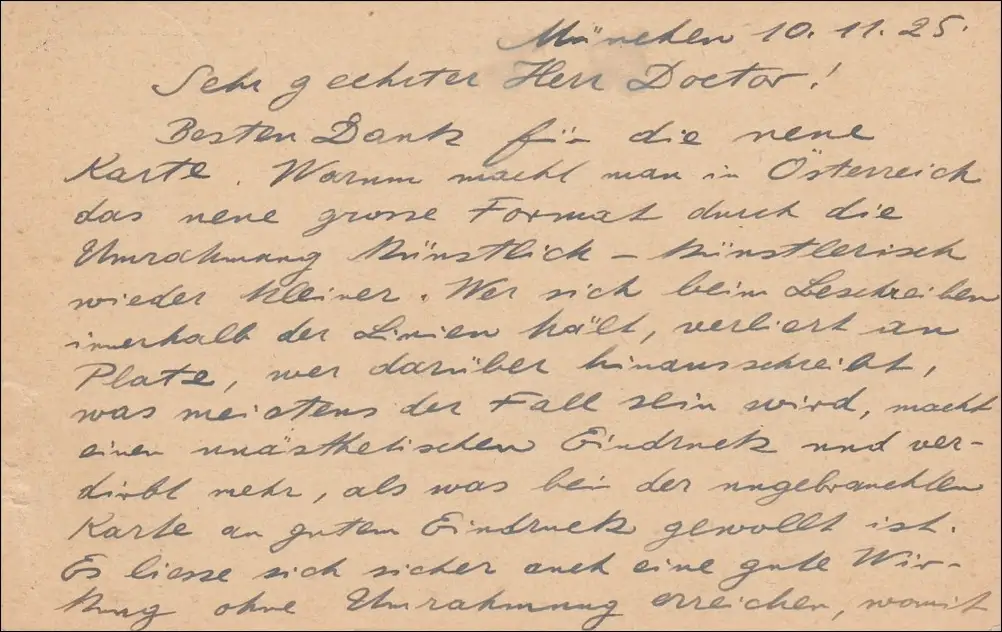 München 10. 11. 25.
Sehr geehrter Herr Doctor!
Besten Dank für die neue
Karte. Warum macht man in Österreich
das neue grosse Format durch die
Umrahmung künstlich – künstlerisch
wieder kleiner. Wer sich beim Beschreiben
innerhalb der Linien hält, verliert an
Platze, wer darüber hinausschreibt,
was meistens der Fall sein wird, macht
einen unästhetischen Eindruck und ver-
dirbt mehr, als was bei der ungebrauchten
Karte an gutem Eindruck gewollt ist.
Es liesse sich sicher auch eine gute Wir-
kung ohne Umrahmung erreichen, womit